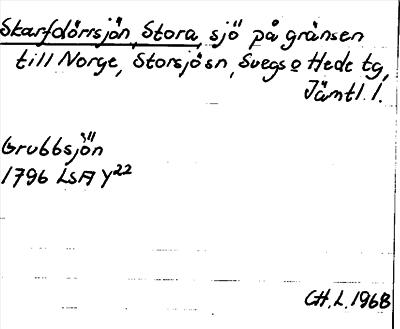 Skarfdörrsjön, Stora, sjö på gränsen
till Norge, Storsjö sn, Svegs o Hede tg,
Jämtl. l.
Grubbsjön
1796 LSA Y22
CH. L. 1968